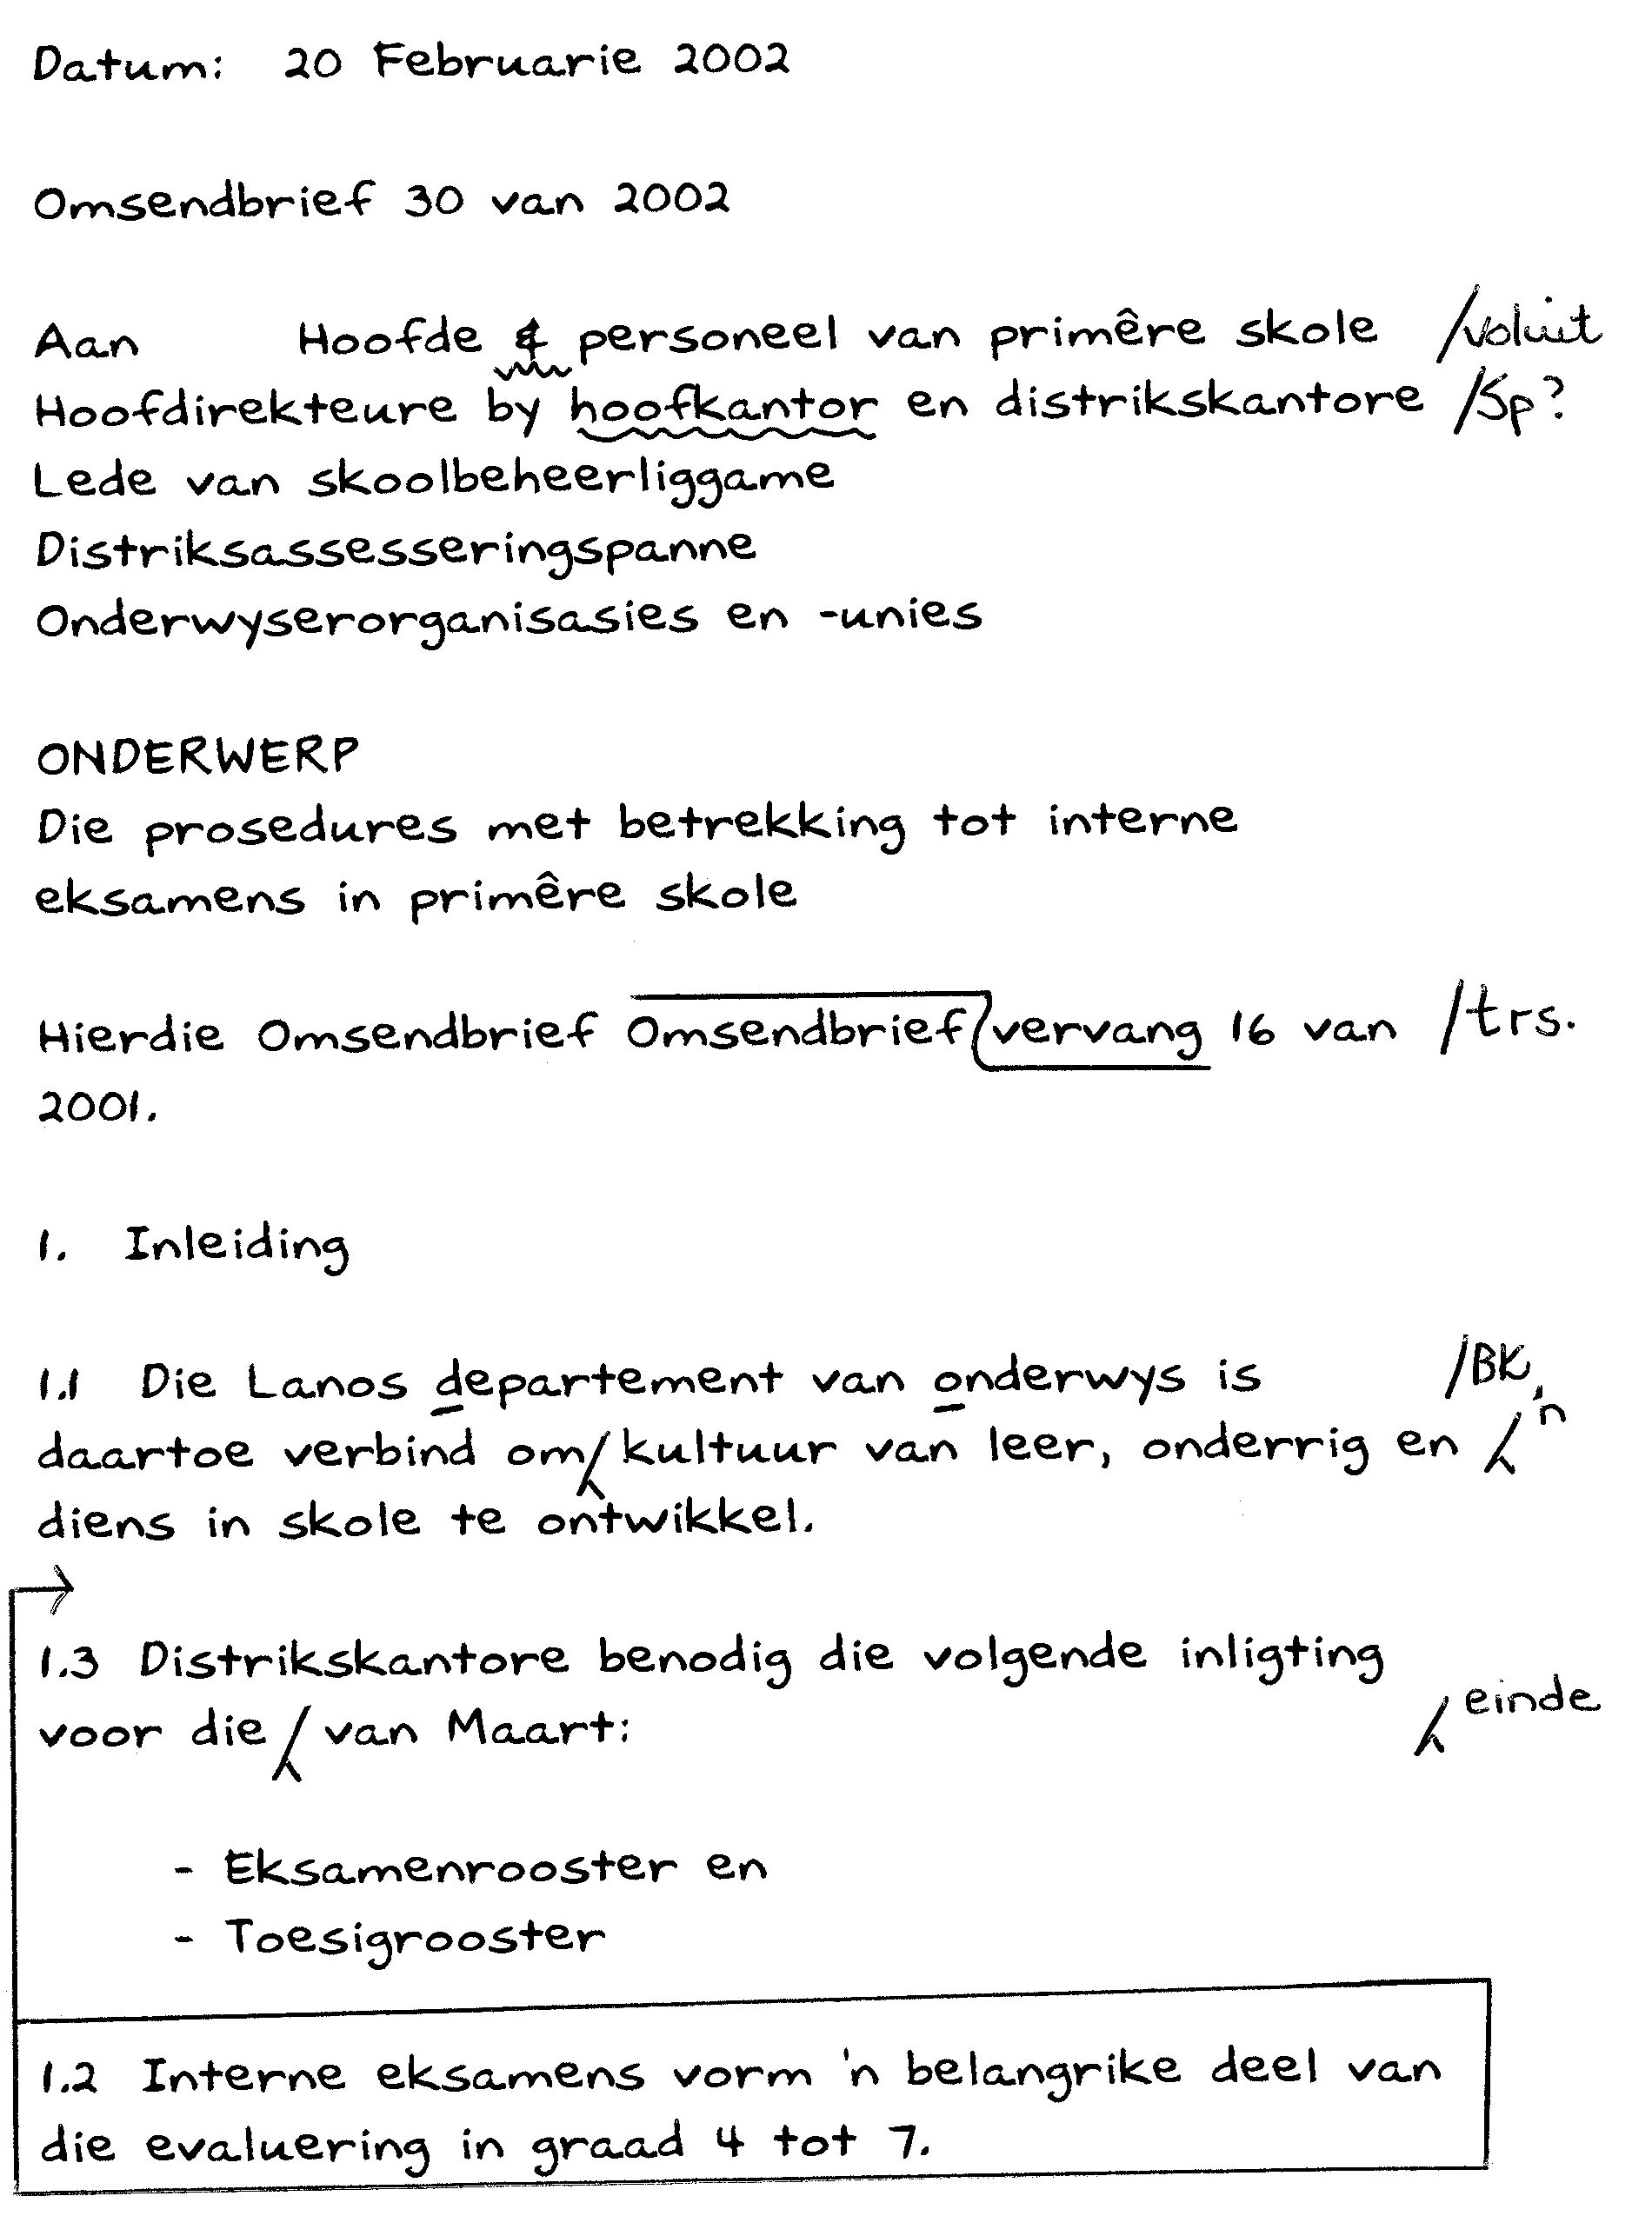 Datum: 20 Februarie 2002
Omsendbrief 30 van 2002
Aan Hoofde & personeel van primêre skole /voluit
Hoofdirekteure by hoofkantor en distrikskantore /Sp?
Lede van skoolbeheerliggame
Distriksassesseringspanne
Onderwyserorganisasies en -unies
ONDERWERP
Die prosedures met betrekking tot interne
eksamens in primêre skole
Hierdie Omsendbrief Omsendbrief vervang 16 van /trs.
2001.
1. Inleiding
1.1 Die Lanos departement van onderwys is /BK
daartoe verbind om kultuur van leer, onderrig en 'n
diens in skole te ontwikkel.
1.3 Distrikskantore benodig die volgende inligting
voor die van Maart: einde
- Eksamenrooster en
- Toesigrooster
1.2 Interne eksamens vorm 'n belangrike deel van
die evaluering in graad 4 tot 7.